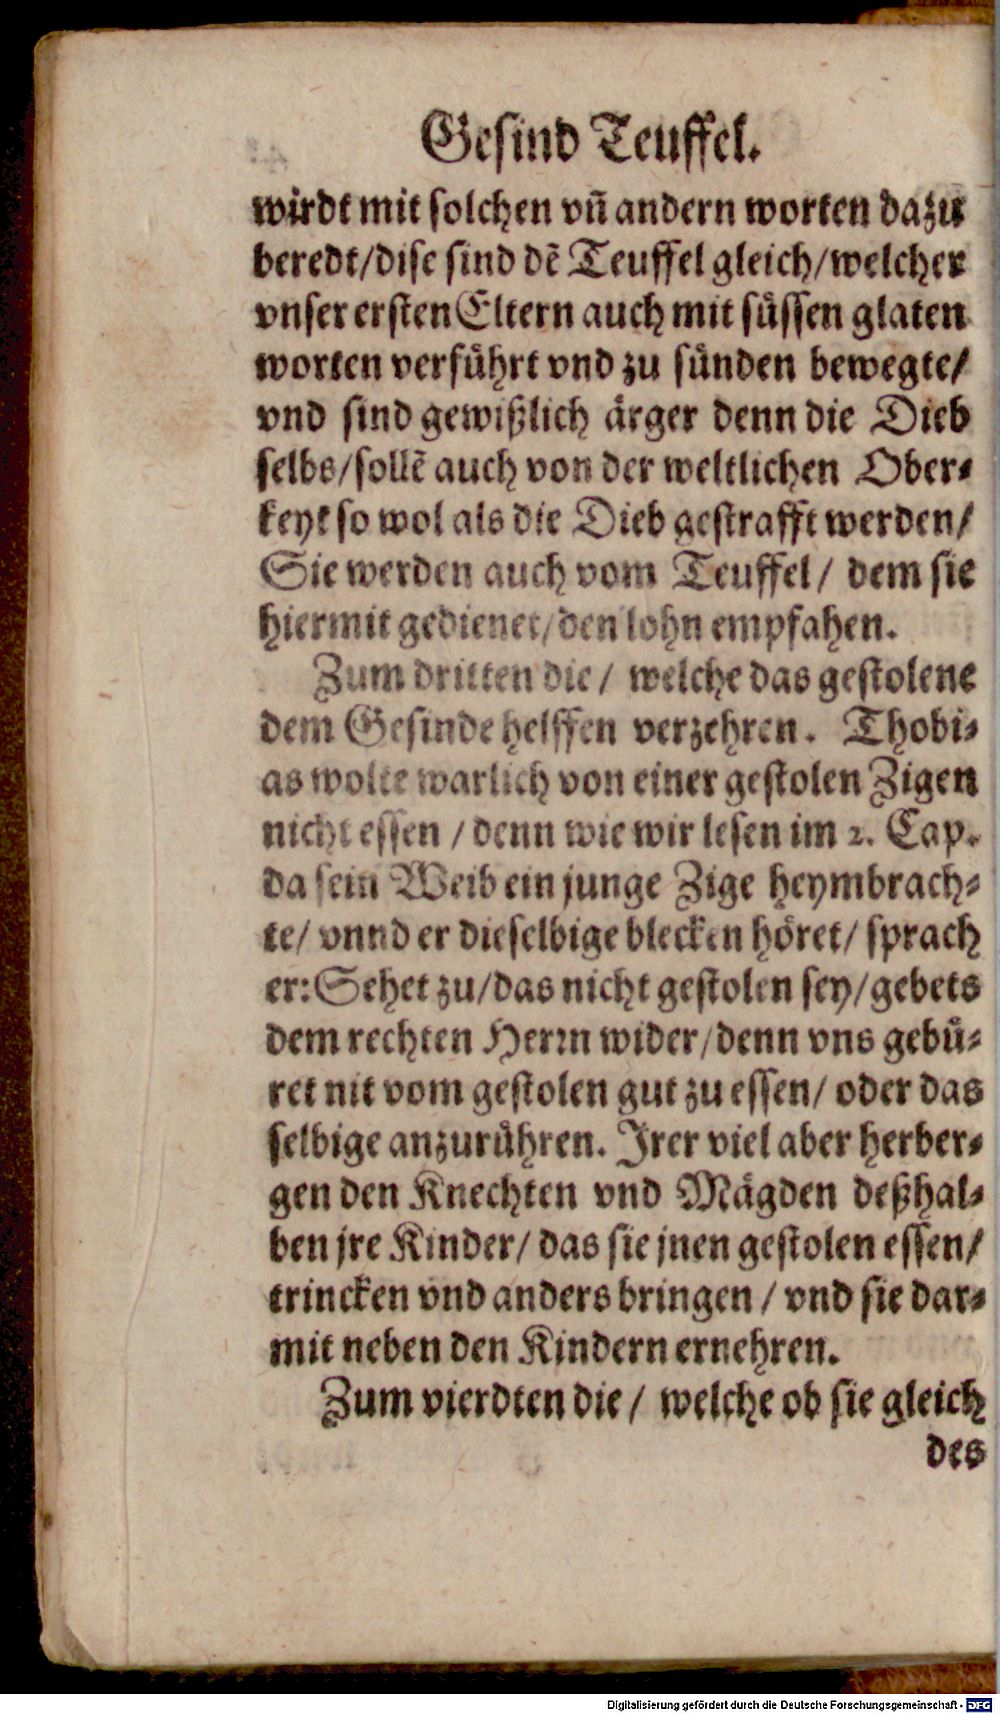 Gesind Teuffel.
wirdt mit solchen vn̄ andern worten dazu
beredt/dise sind dē Teuffel gleich/welcher
vnser ersten Eltern auch mit süssen glaten
worten verführt vnd zu sünden bewegte/
vnd sind gewißlich ärger denn die Dieb
selbs/sollē auch von der weltlichen Ober-
keyt so wol als die Dieb gestrafft werden/
Sie werden auch vom Teuffel/ dem sie
hiermit gedienet/den lohn empfahen.
Zum dritten die/ welche das gestolene
dem Gesinde helffen verzehren. Thobi-
as wolte warlich von einer gestolen Zigen
nicht essen / denn wie wir lesen im 2. Cap.
da sein Weib ein junge Zige heymbrach-
te/ vnnd er dieselbige blecken höret/ sprach
er: Sehet zu/das nicht gestolen sey/gebets
dem rechten Herrn wider/denn vns gebü-
ret nit vom gestolen gut zu essen/ oder das
selbige anzurühren. Irer viel aber herber-
gen den Knechten vnd Mägden deßhal-
ben jre Kinder/ das sie jnen gestolen essen/
trincken vnd anders bringen / vnd sie dar-
mit neben den Kindern ernehren.
Zum vierdten die / welche ob sie gleich
des
Digitalisierung gefördert durch die Deutsche Forschungsgemeinschaft - DFG